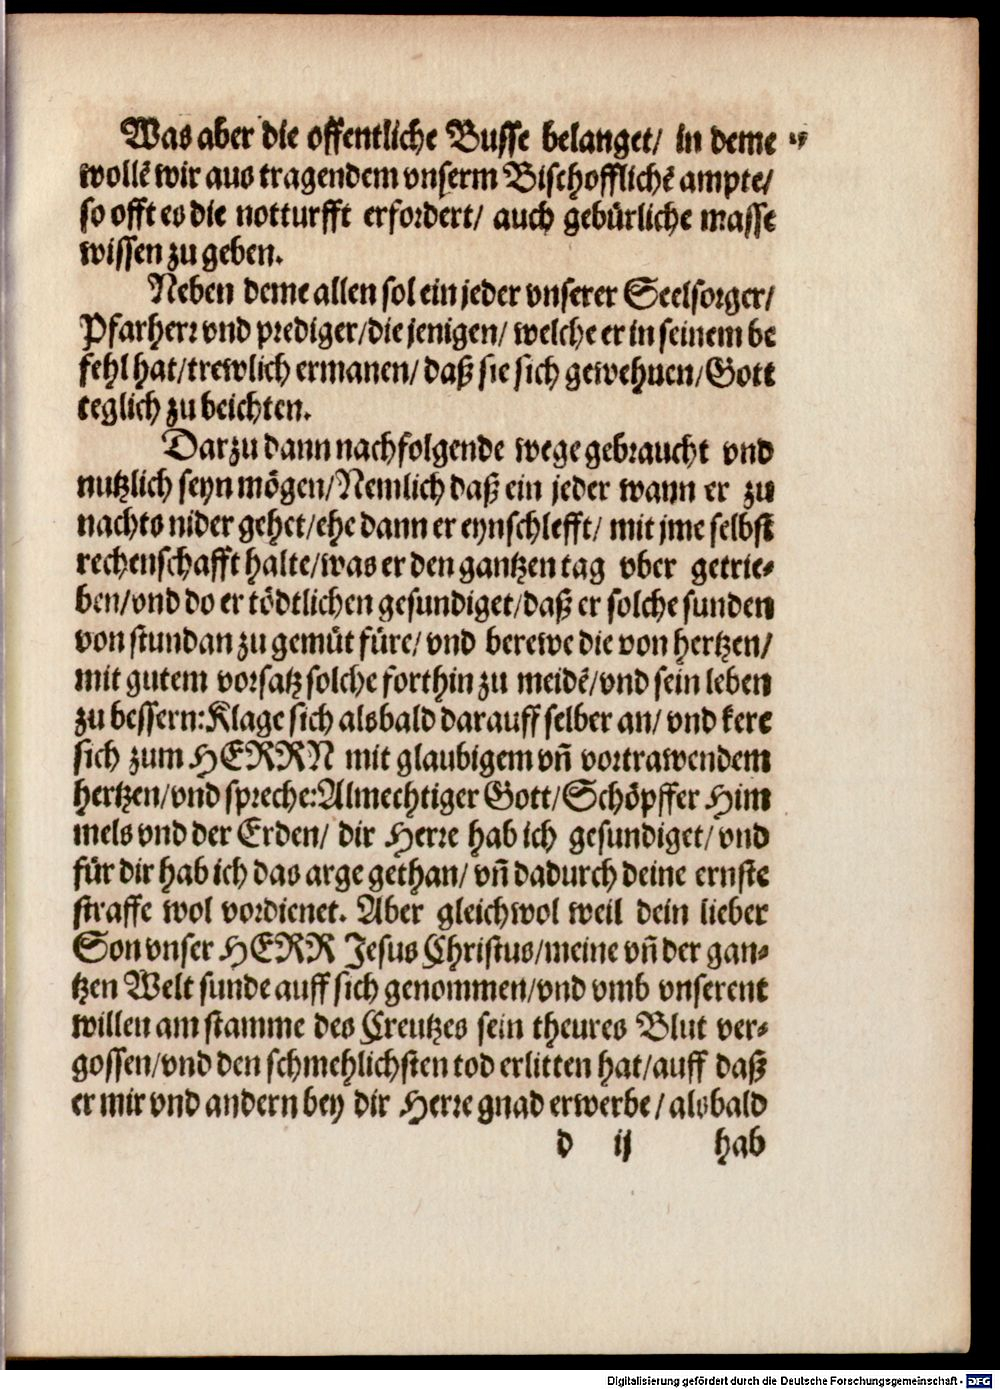 Was aber die offentliche Busse belanget/ in deme
wollē wir aus tragendem vnserm Bischofflichē ampte/
so offt es die notturfft erfordert/ auch gebürliche masse
wissen zu geben.
Neben deme allen sol ein jeder vnserer Seelsorger/
Pfarherr vnd prediger/die jenigen/ welche er in seinem be
fehl hat/trewlich ermanen/ daß sie sich gewehnen/Gott
teglich zu beichten.
Darzu dann nachfolgende wege gebraucht vnd
nutzlich seyn mögen/Nemlich daß ein jeder wann er zu
nachts nider gehet/ehe dann er eynschlefft/ mit jme selbst
rechenschafft halte/was er den gantzen tag vber getrie-
ben/vnd do er tödtlichen gesundiget/daß er solche sunden
von stundan zu gemüt füre/ vnd berewe die von hertzen/
mit gutem vorsatz solche forthin zu meidē/vnd sein leben
zu bessern:Klage sich alsbald darauff selber an/ vnd kere
sich zum HERRN mit glaubigem vñ vortrawendem
hertzen/vnd spreche:Almechtiger Gott/Schöpffer Him
mels vnd der Erden/ dir Herre hab ich gesundiget/ vnd
für dir hab ich das arge gethan/ vñ dadurch deine ernste
straffe wol vordienet. Aber gleichwol weil dein lieber
Son vnser HERR Jesus Christus/meine vñ der gan-
tzen Welt sunde auff sich genommen/vnd vmb vnserent
willen am stamme des Creutzes sein theures Blut ver-
gossen/vnd den schmehlichsten tod erlitten hat/auff daß
er mir vnd andern bey dir Herre gnad erwerbe/ alsbald
d ij hab
Digitalisierung gefördert durch die Deutsche Forschungsgemeinschaft - DFG